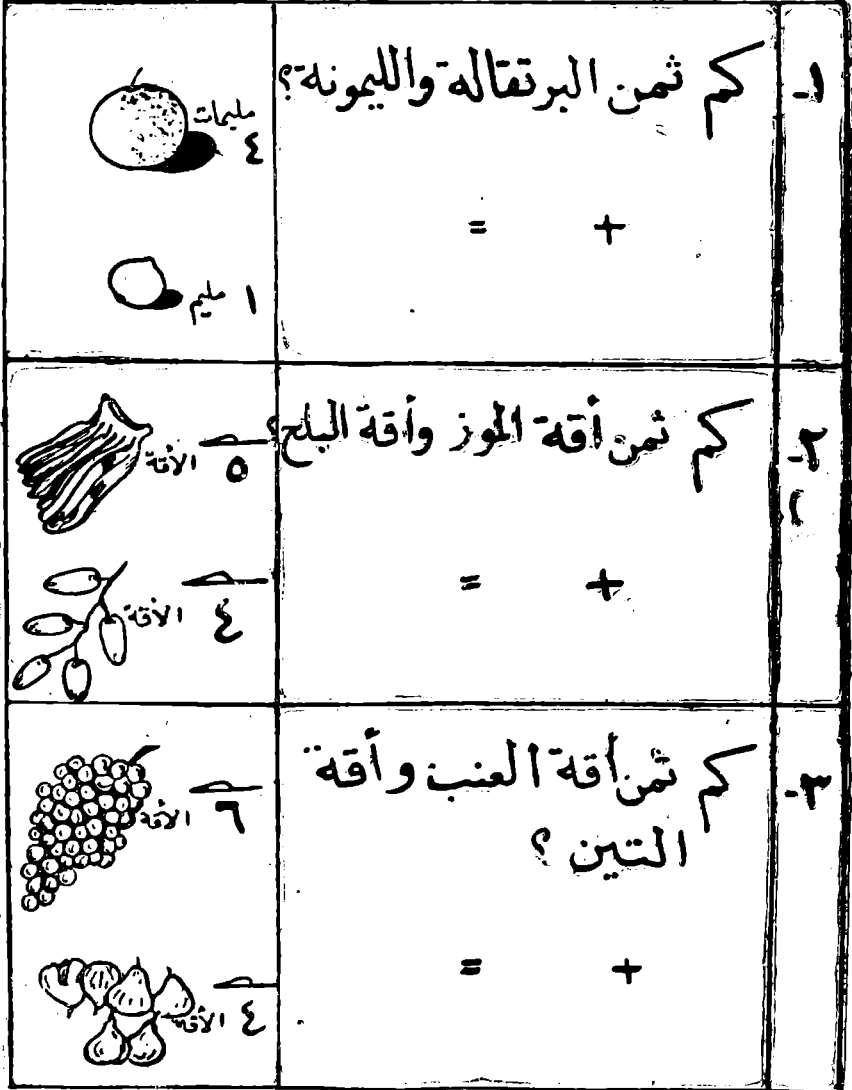 ١- كم ثمن البرتقالة والليمونة؟
مليمات
٤
+ =
١ مليم
٢- كم ثمن أقة الموز وأقة البلح؟
٥ الأقة
+ =
٤ الأقة
٣- كم ثمن أقة العنب وأقة
التين؟
٦ الأقة
+ =
٤ الأقة